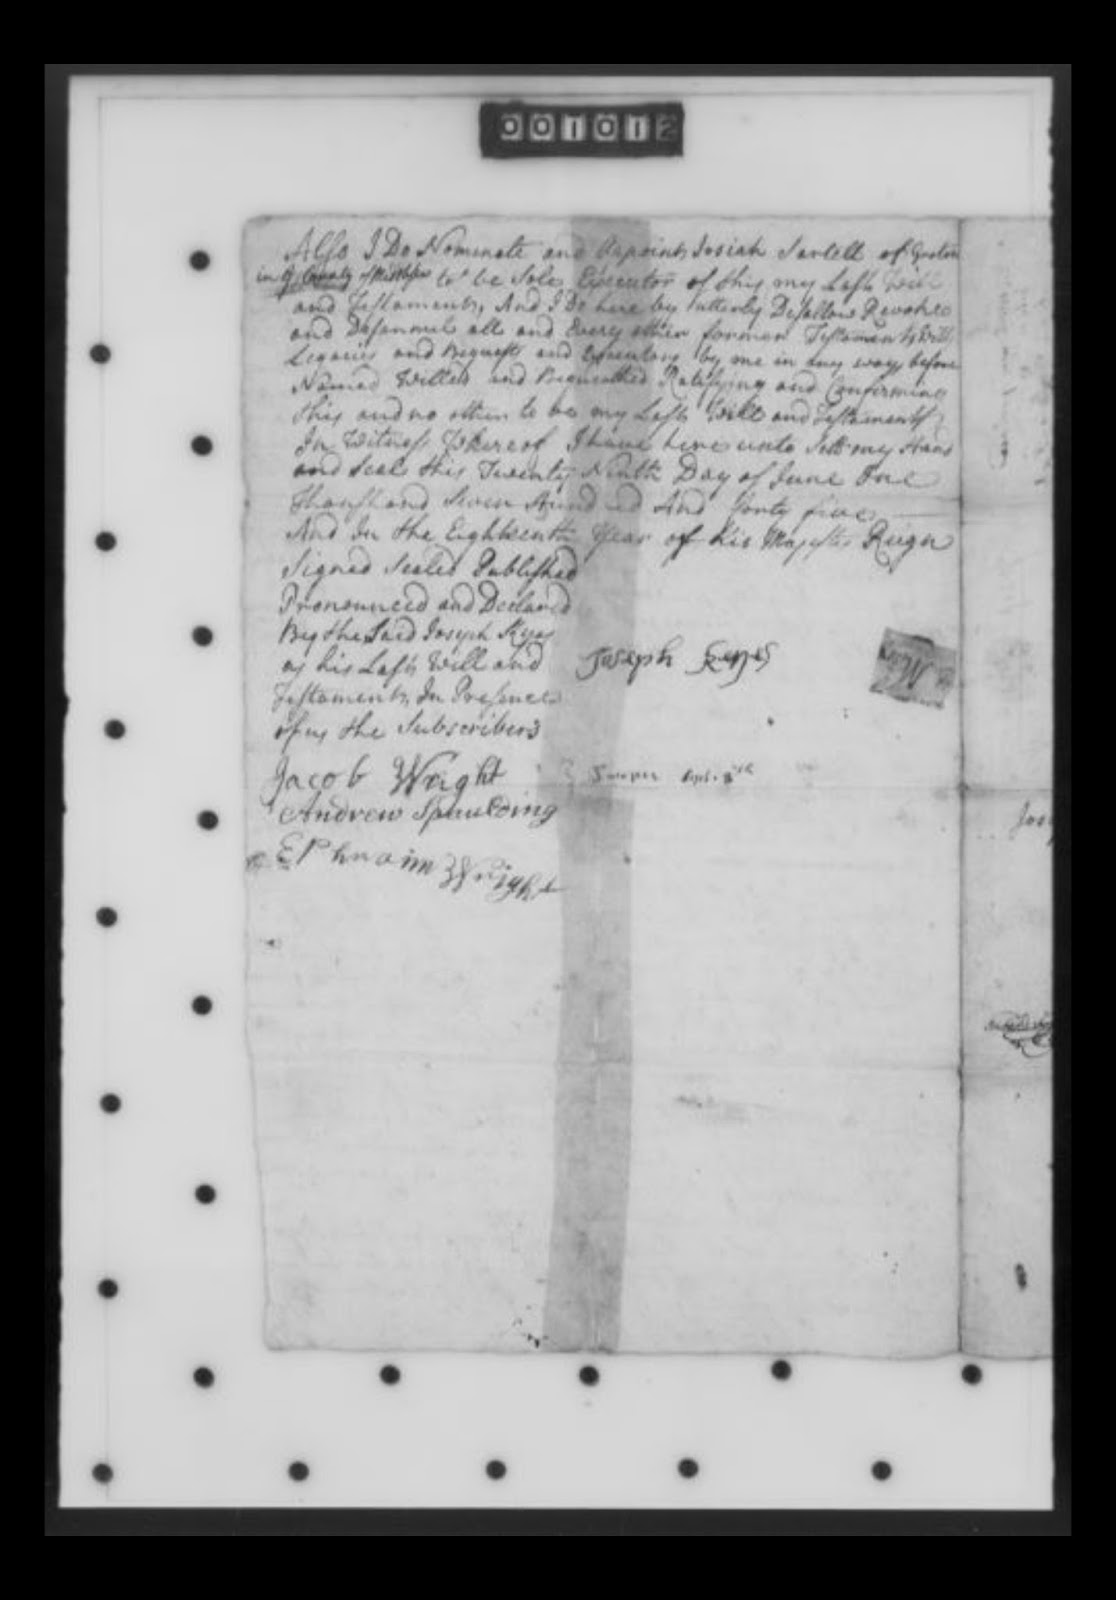 001012
Allso I Do Nominate and Appoint Josiah Sartell of Groton
in ye County of Middlesex to be Sole Executor of this my Last Will
and Testament, And I Do here by utterly Disallow Revoke
and Disannul all and Every other former Testaments Wills
Legacies and Bequests and Executors by me in any ways before
Named Willed and Bequeathed Ratifying and Confirming
this and no other to be my Last Will and Testament
In Witness Whereof I have here unto Sett my Hand
and Seal this Twenty Ninth Day of June One
Thousand Seven Hundred And forty five
And In the Eighteenth Year of his Majesties Reign
Signed Sealed Published
Pronounced and Declared
By the Said Joseph Keyes
as his Last Will and Joseph Keyes
Testament, In Presence
of us the Subscribers
Jacob Wright
Andrew Spaulding
Ephraim Wright
Jos